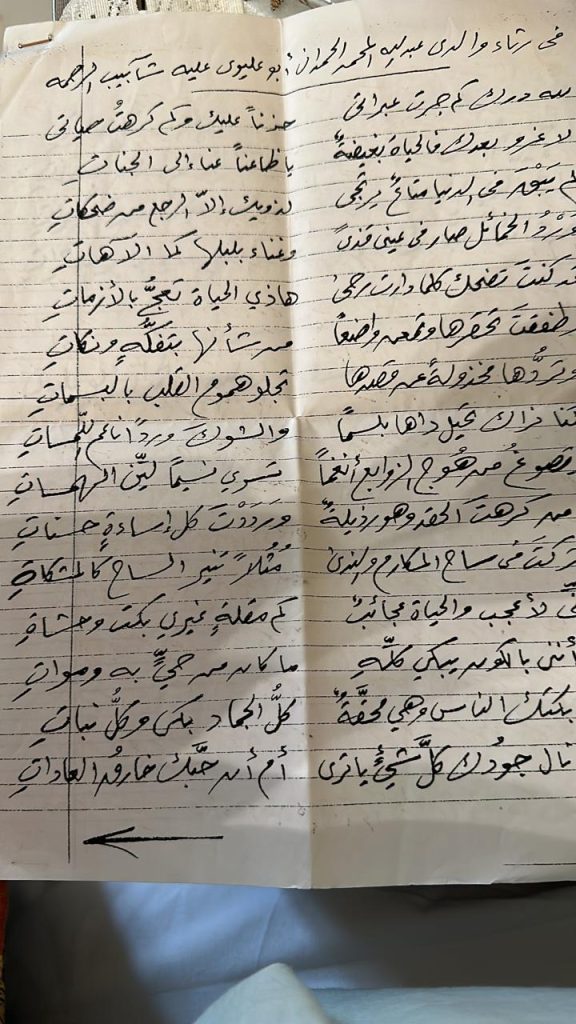 فى رثاء والدى عبدالله المحمد الحمدان أبو عليوى عليه شآبيب الرحمه
لله درك كم جرت عبراتى حزناً عليك وكم كرهتُ حياتى
لا غرو بعدك فالحياة بغيضةٌ يا ظاعناً عنا إلى الجناتِ
لم يَبْقَ فى الدنيا متاعٌ يرتجى لذويك إلاّ الرجع من ضحكاتِ
وَرْدُ الخمائل صار فى عينى قذىً وغناء بلبلها كما الآهاتِ
قد كنتَ تضحك كلما دارت رحى هاذي الحياة تعجُّ بالأزماتِ
وطفقتَ تحقرها وتمعن واضعاً من شأنها بتفكّهٍ ونكاتِ
وتردُّها مخذولةً عن قصدها تجلو هموم القلب بالبسماتِ
كنا نراك تحيل داها بلسمًا والشوك ورداً ناعم اللّمساتِ
وتصوغُ من هُوج الزوابع أنغماً تسري نسيمًا ليّن الهمساتِ
من كرهتَ الحقد وهو رذيلةٌ ورَدَدْتَ كل إساءةٍ حسناتِ
تركتَ فى ساح المكارم والندى مُثُلاً تنير الساح كالمشكاةِ
لأعجب والحياة عجائبٌ كم مقلةٍ غيري بكت وحشاةِ
أننى بالكون يبكي كلّهِ ما كان من حيٍّ به ومواتِ
بكتك الناس وهي محقّةٌ كلُّ الجماد بكى وكلُّ نباتِ
نال جودُك كلَّ شيءٍ يا ترى أم أن حبَّك خارقُ العاداتِ